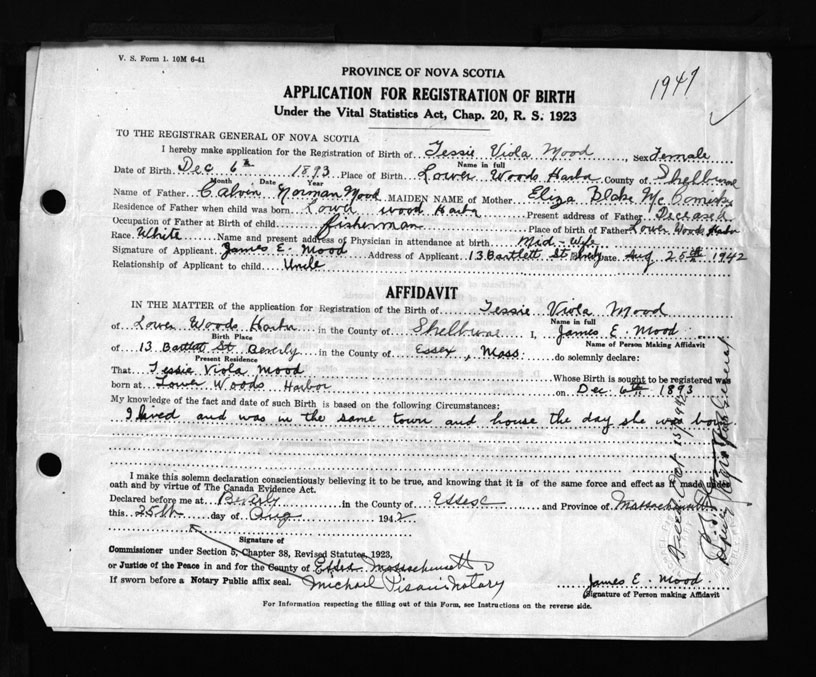 V. S. Form 1. 10M 6-41
1947
PROVINCE OF NOVA SCOTIA
APPLICATION FOR REGISTRATION OF BIRTH
Under the Vital Statistics Act, Chap. 20, R. S. 1923
TO THE REGISTRAR GENERAL OF NOVA SCOTIA
I hereby make application for the Registration of Birth of Tessie Viola Mood, sex Female
Name in full
Date of Birth Dec 6th 1893 Place of Birth Lower Woods Harbr County of Shelburne
Month Date Year
Name of Father Calvin Norman Mood MAIDEN NAME of Mother Eliza Blake
Residence of Father when child was born Lower wood Harbr Present address of Father Deceased
Occupation of Father at Birth of child fisherman Place of birth of Father Lower Woods Harbr
Race White Name and present address of Physician in attendance at birth Mid-Wife
Signature of Applicant James E. Mood Address of Applicant 13 Bartlett St Bevely Date Aug 25th 1942
Relationship of Applicant to child Uncle
AFFIDAVIT
IN THE MATTER of the application for Registration of the Birth of Tessie Viola Mood
Name in full
of Lower Woods Harbr in the County of Shelburne I, James E. Mood
Birth Place Name of Person Making Affidavit
of 13 Bartlett St Beverly in the County of Essex, Mass. do solemnly declare:
Present Residence
That Tessie Viola Mood Whose Birth is sought to be registered was
born at Lower Woods Harbor on Dec 6th 1893
My knowledge of the fact and date of such Birth is based on the following Circumstances:
I lived and was in the same town and house the day she was born
I make this solemn declaration conscientiously believing it to be true, and knowing that it is of the same force and effect as if made under
oath and by virtue of The Canada Evidence Act.
Declared before me at Beverly in the County of Essex and Province of Massachusetts
this 25th day of Aug 1942
Signature of
Commissioner under Section 5, Chapter 38, Revised Statutes, 1923,
or Justice of the Peace in and for the County of Essex Massachusetts
If sworn before a Notary Public affix seal. Michael Pisani notary James E. Mood
Signature of Person making Affidavit
For Information respecting the filling out of this Form, see Instructions on the reverse side.